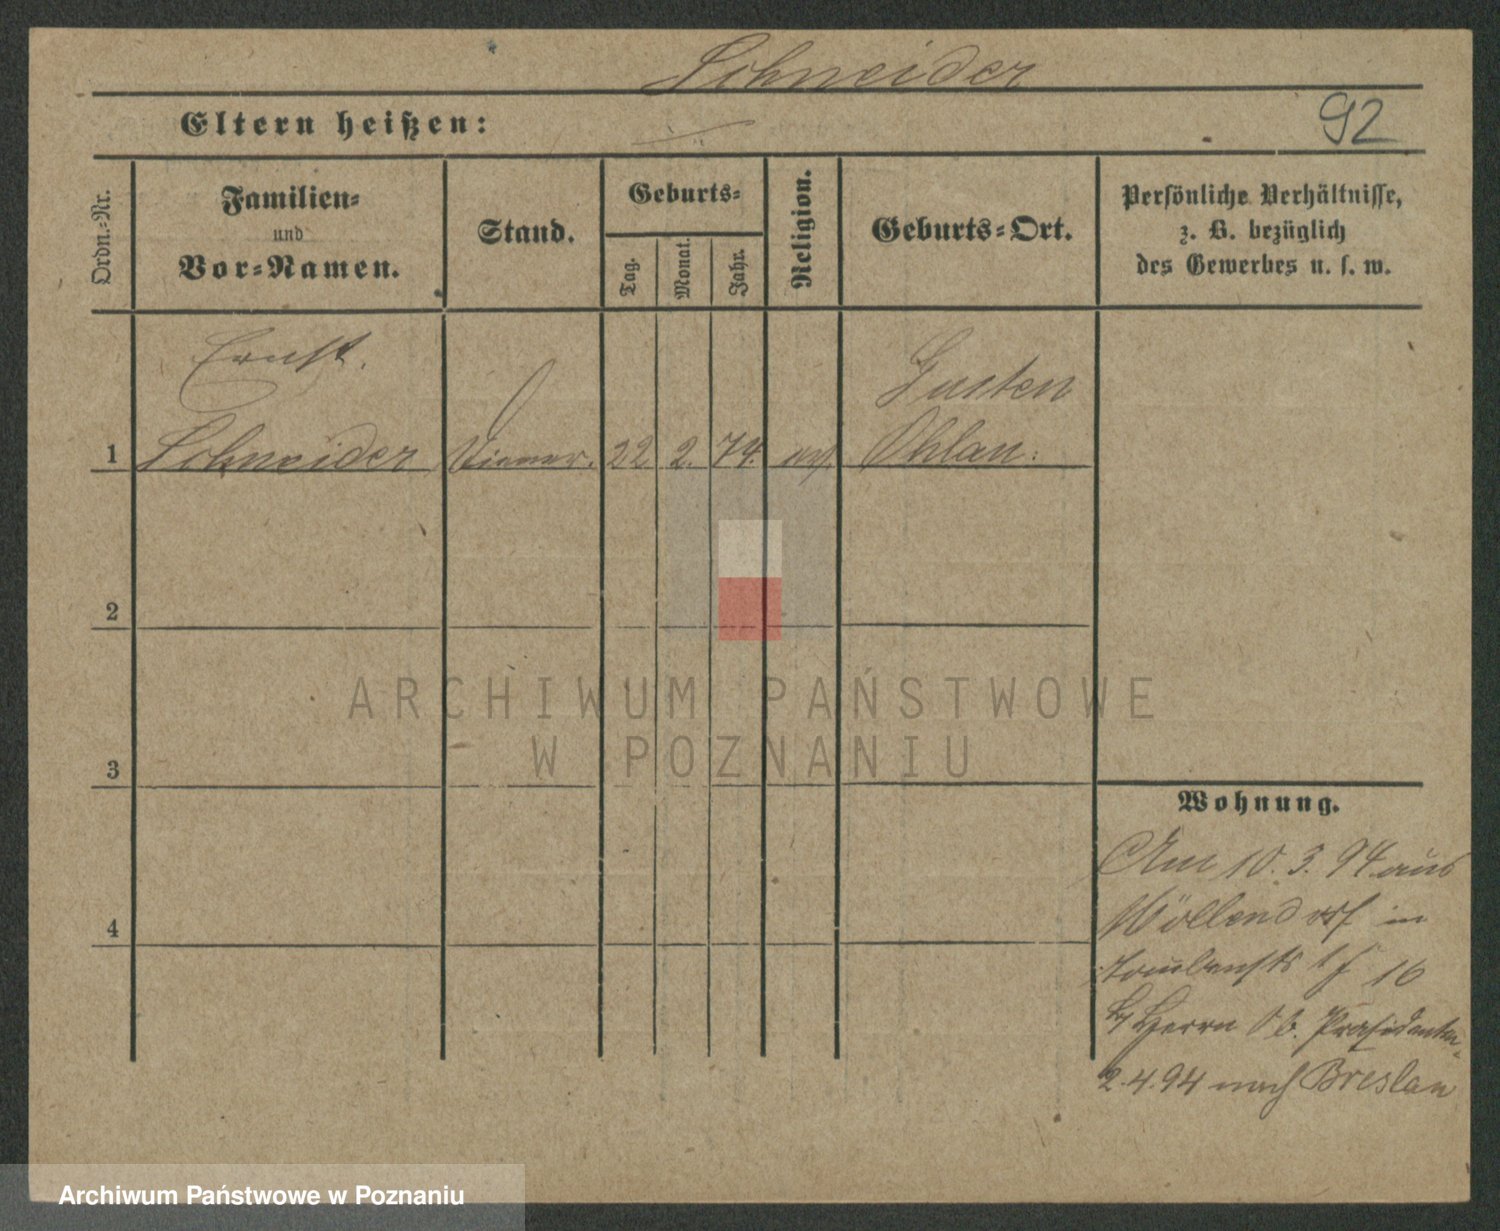 Schneider
Eltern heißen:
92
Ordn.-Nr.
Familien-
und
Vor-Namen.
Stand.
Geburts-
Tag.
Monat.
Jahr.
Religion.
Geburts-Ort.
Persönliche Verhältnisse,
z. B. bezüglich
des Gewerbes u. s. w.
Ernst.
Gusten
1 Schneider Diener. 22. 2. 74. ev. Ohlau.
2
3
4
Wohnung.
Am 10. 3. 94 aus
Wöllendorf in
16
b/ Herrn Ob. Präsidenten
2.4.94 nach Breslau
ARCHIWUM PAŃSTWOWE
W POZNANIU
Archiwum Państwowe w Poznaniu